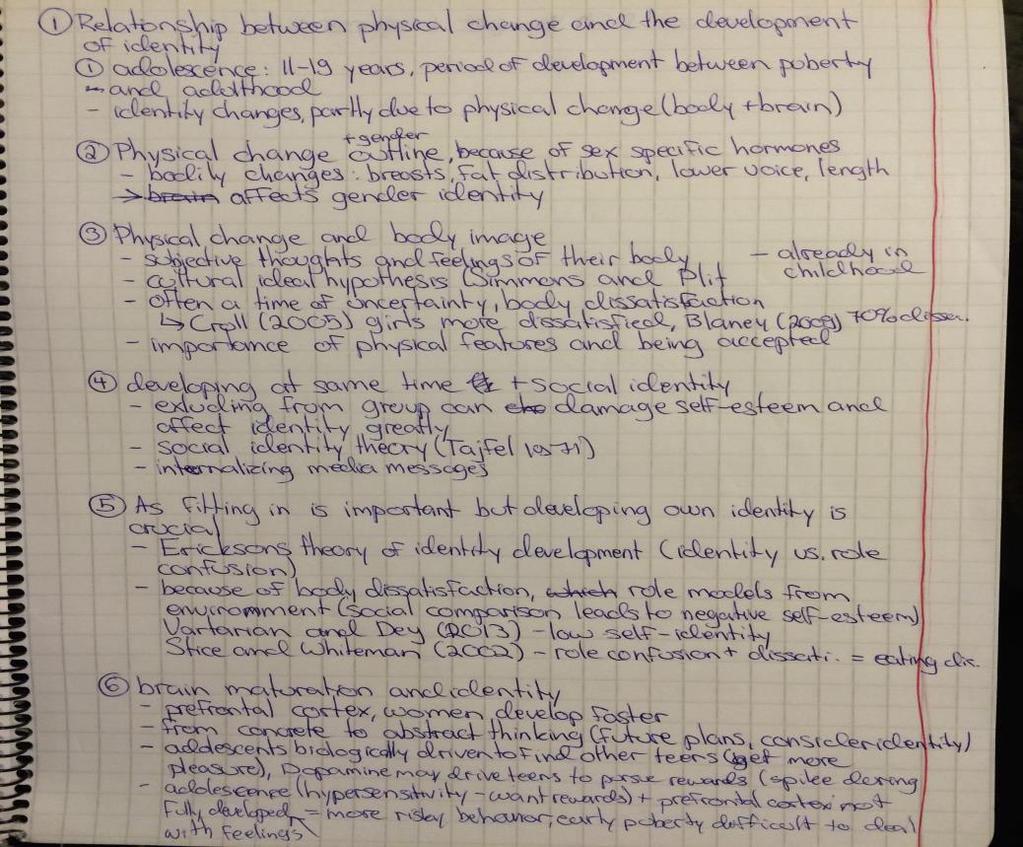 ① Relationship between physical change and the development
of identity
① adolescence: 11-19 years, period of development between poberty
- and adulthood
- identity changes, partly due to physical change (body + brain)
+ gender
② Physical change outline, because of sex specific hormones
- bodily changes: breasts, fat distribution, lower voice, length
→ brain affects gender identity
③ Physical change and body image
- subjective thoughts and feelings of their body - already in
childhood
- cultural ideal hypothesis Simmons and Blit
- often a time of uncertainty, body dissatisfaction
↳ Croll (2005) girls more dissatisfied, Blaney (2008) 70% dissa.
- importance of physical features and being accepted
④ developing at same time + social identity
- exluding from group can damage self-esteem and
affect identity greatly
- social identity theory (Tajfel 1971)
- internalizing media messages
⑤ As fitting in is important but developing own identity is
crucial
- Ericksons theory of identity development (identity vs. role
confusion)
- because of body dissatisfaction, which role models from
environmment (social comparison leads to negative self-esteem)
Vartarian and Dey (2013) - low self-identity
Stice and Whiteman (2002) - role confusion + dissati. = eating dis.
⑥ brain maturation and identity
- prefrontal cortex, women develop faster
- from concrete to abstract thinking (future plans, consider identity)
- adolescents biologically driven to find other teens (get more
pleasure), Dopamine may drive teens to pursue rewards (spike during
- adolescence (hypersensitivity - want rewards) + prefrontal cortex not
fully developed = more risky behavior, early puberty difficult to deal
with feelings